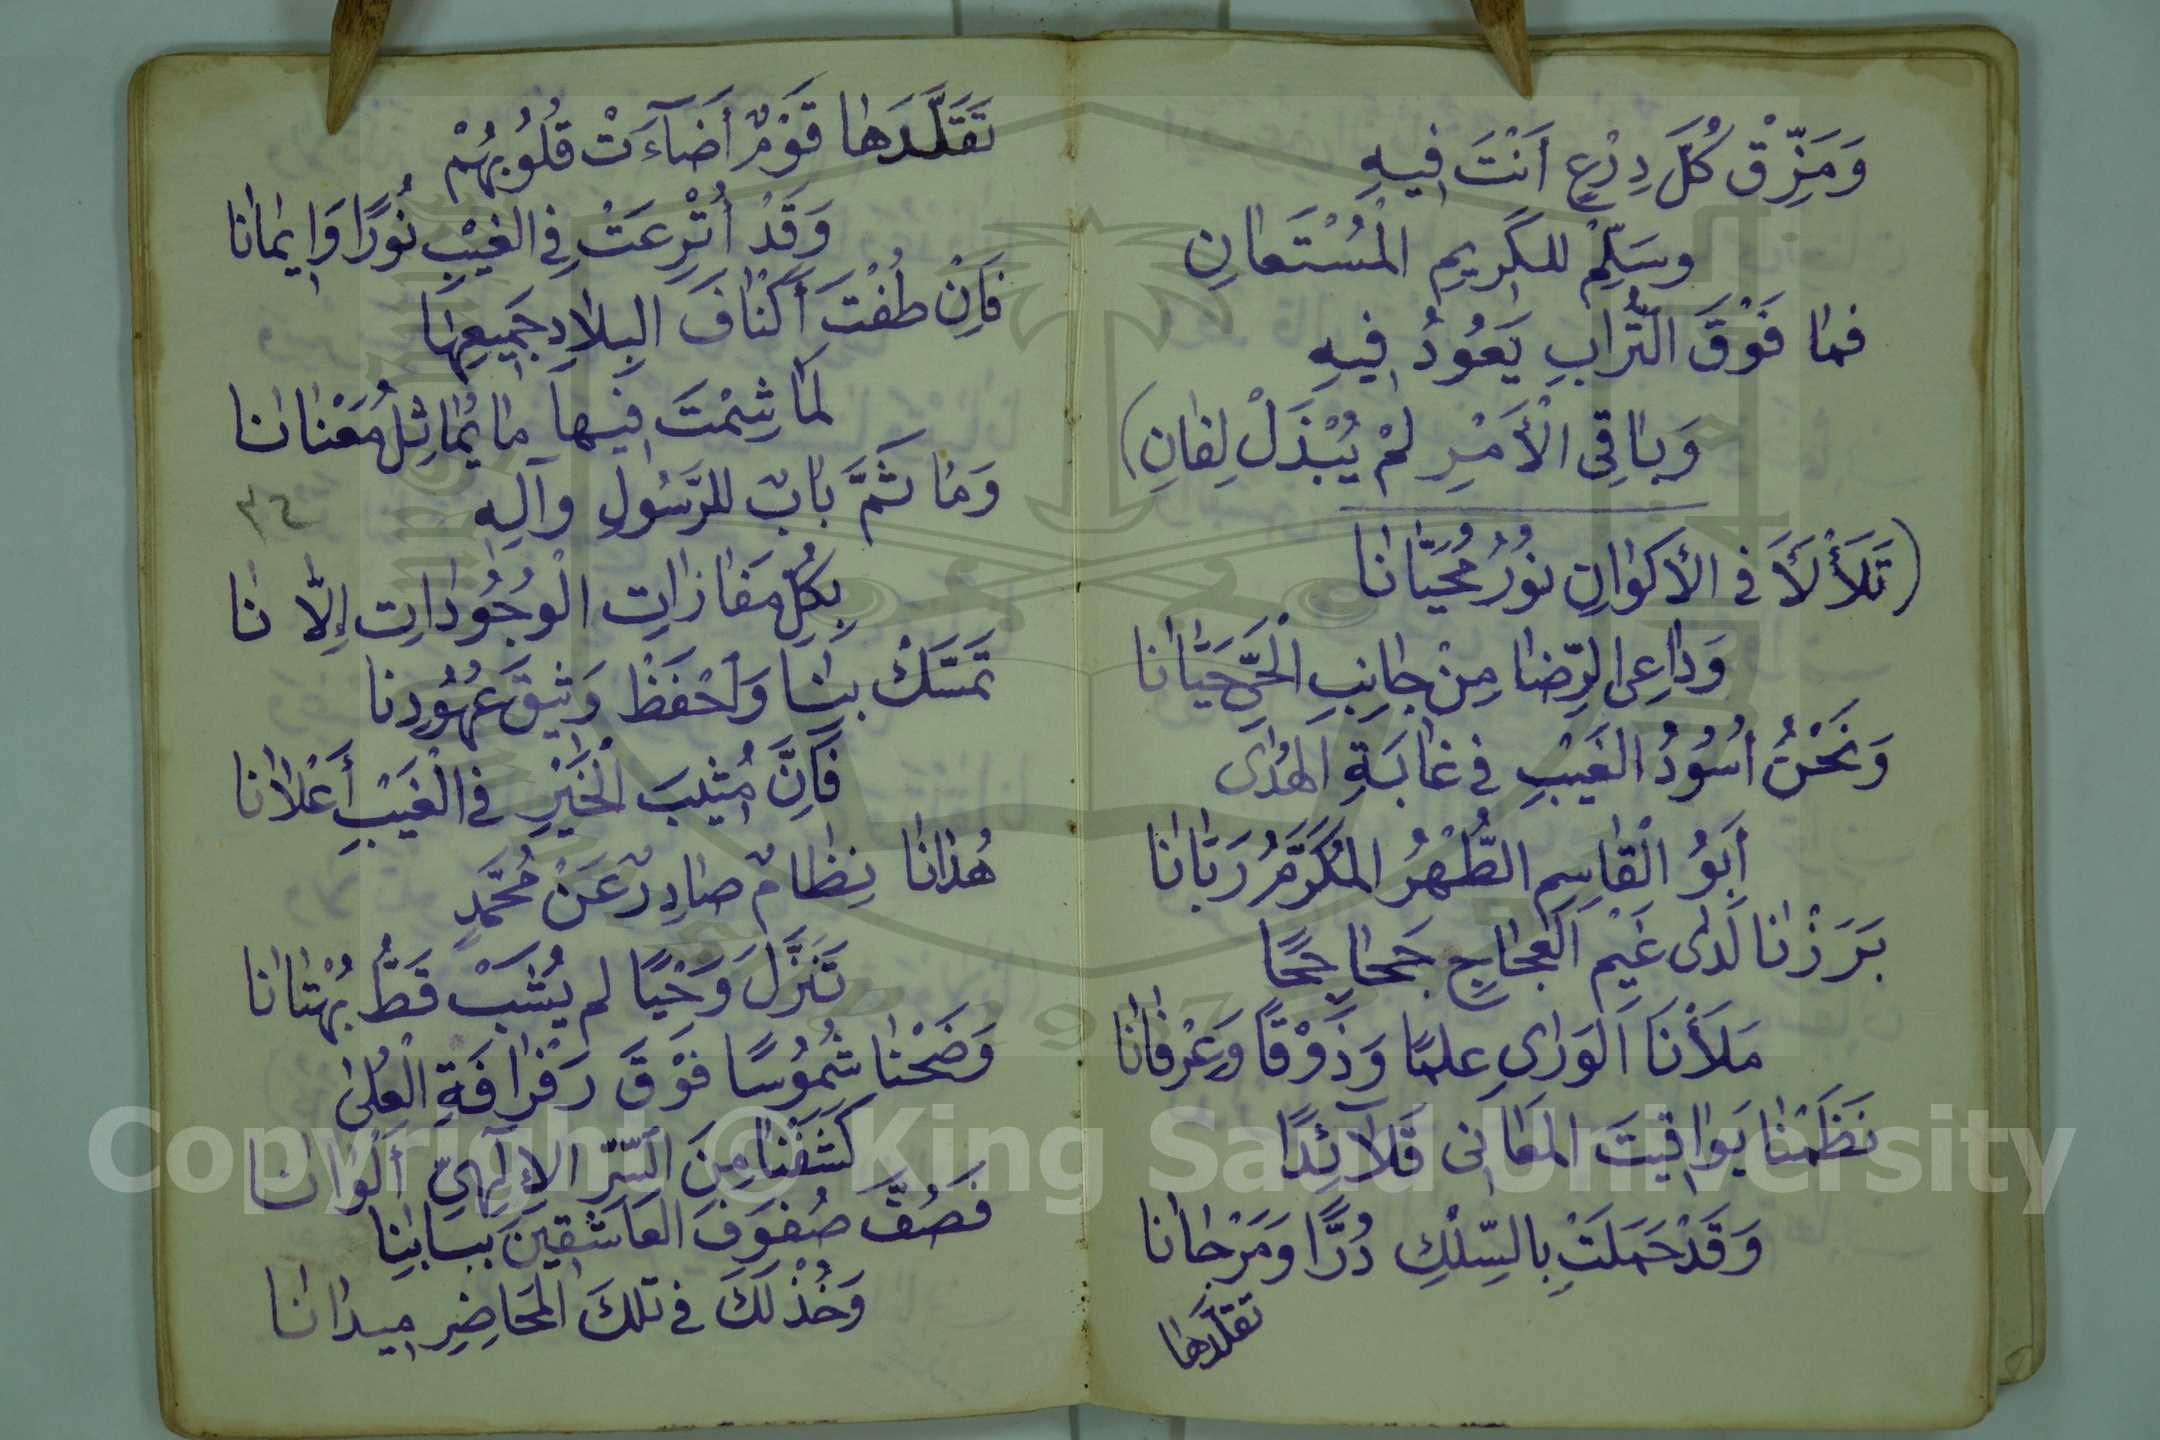 وَمَزِّقْ كُلَّ دِرْعٍ أَنْتَ فِيهِ
وسَلِّمْ للكَرِيمِ الْمُسْتَعانِ
فما فَوْقَ التُّرابِ يَعُودُ فِيهِ
وَباقِى الْأَمْرِ لَمْ يُبْذَلْ لِفانِ)
(تَلَأْلَأَ فى الأكوانِ نُورُ مُحَيَّانا
وَداعِى الرِّضا مِنْ جانِبِ الْحَىِّ حَيَّانا
وَنَحْنُ اُسُودُ الغَيْبِ فى غابَةِ الهُدٰى
أَبُو الْقاسِمِ الطُّهْرُ المُكَرَّمُ رَبَّانا
بَرَزْنا لَدٰى غَيْمِ العَجاجِ جَحاجِحًا
مَلَأْنَا الوَرٰى عِلمًا وَذَوْقًا وَعِرْفانا
نَظَمْنا يَواقِيتَ المَعانِى قَلَآئِدًا
وَقَدْ حَمَلَتْ بِالسِّلْكِ دُرًّا وَمَرْجانا
تقلّدها
تَقَلَّدَها قَوْمٌ أَضَآءَتْ قُلُوبُهُمْ
وَقَدْ أُتْرِعَتْ فِى الغَيْبِ نُورًا وَإِيمانا
فَإِنْ طُفْتَ أَكْنافَ البِلادِ جَمِيعِهَا
لَمَا شِمْتَ فِيها ما يُماثِلُ مَعْنانا
وَمَا ثَمَّ بابٌ للرَّسُولِ وآلِهِ
٣٤
بِكُلِّ مَفازاتِ الْوُجُوداتِ إِلَّا نا
تَمَسَّكْ بِنا وَاحْفَظْ وَثِيقَ عُهُودِنا
فَإِنَّ مُثِيبَ الْخَيْرِ فى الْغَيْبِ أَعْلانا
هُذانا نِظامٌ صادِرٌ عَنْ مُحَمَّدٍ
تَنَزَّلَ وَحْيًا لم يُشَبْ قَطُّ بُهْتانا
وَضَحْنا شُمُوسًا فَوْقَ رَفْرافَةِ الْعُلىٰ
كَشَفْنا مِنَ السِّرِّ الإِلٰهِىِّ أَلْوانا
فَصُفَّ صُفوفَ العاشِقينَ ببابِنا
وَخُذْ لَكَ فى تلكَ المَحاضِرِ ميدانا
Copyright © King Saud University
1957